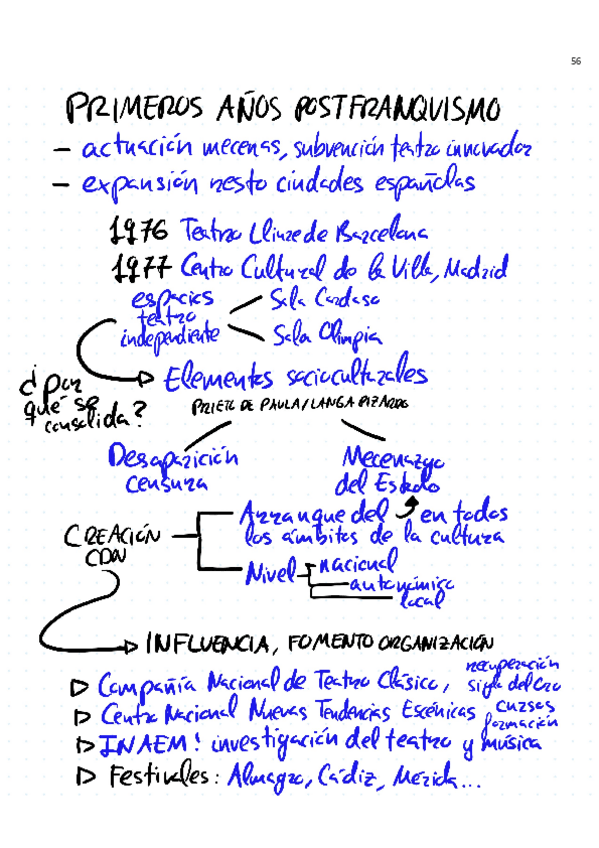 56
PRIMEROS AÑOS POSTFRANQUISMO
– actuación mecenas, subvención teatro innovador
– expansión resto ciudades españolas
1976 Teatro Lliure de Barcelona
1977 Centro Cultural de la Villa, Madrid
espacios teatro independiente
Sala Cadarso
Sala Olimpia
¿Por qué se consolida?
Elementos socioculturales
PRIETO DE PAULA/LANGA PIZARRO
Desaparición censura
Mecenazgo del Estado
CREACIÓN CDN
Arranque del en todos
los ámbitos de la cultura
Nivel
nacional
autonómico
local
INFLUENCIA, FOMENTO ORGANIZACIÓN
Compañía Nacional de Teatro Clásico, recuperación siglo del Oro
Centro Nacional Nuevas Tendencias Escénicas cursos formación
INAEM: investigación del teatro y música
Festivales: Almagro, Cádiz, Mérida...